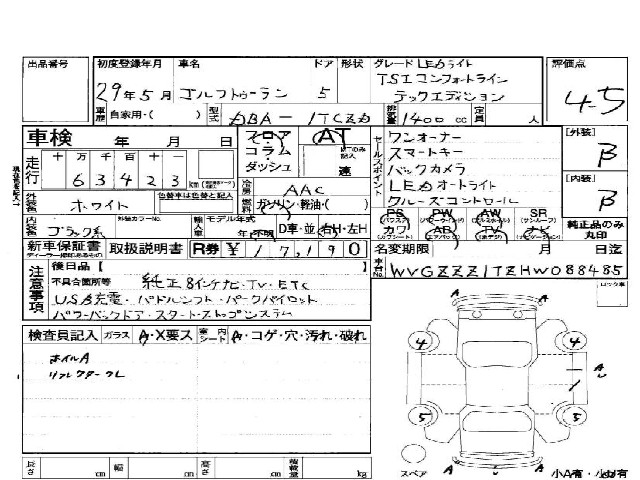 出品番号 初度登録年月 車名 ドア 形状 グレード LEDライト 評価点
29年5月 ゴルフトゥーラン 5 TSIコンフォートライン
テックエディション
4-5
車歴 自家用・( ) 型式 DBA-1TCZD 排気量 1400 cc 定員 人
車検 年 月 日 フロア AT
コラム
ダッシュ 速
セールスポイント ワンオーナー
スマートキー
バックカメラ
LEDオートライト
クルーズコントロール
[外装] B
[内装] B
走行 十 万 千 百 十 一
63423 km
冷房 AAC
外装色 ホワイト 色替車は色替と記入 燃料 ガソリン・軽油・( )
内装色 ブラック系 外装カラーNo. 輸入車 モデル年式 年・不明 D車・並 右H・左H
PS PW AW SR
カワ AB TV ナビ
純正品のみ丸印
新車保証書 取扱説明書 R券 ¥17,190
ディーラー捺印あるもの
名変期限 月 日迄
車台No. WVGZZZ1TZHW088485
注意事項 後日品【 】
不具合箇所等 純正8インチナビ・TV・ETC
USB充電・パドルシフト・パークパイロット
パワーバックドア・スタート・ストップシステム
ロック車
検査員記入 ガラス A・X要ス 室内シート A・コゲ・穴・汚れ・破れ
ホイルA
リフレクタークレ
A
4 4
A
U
5 5
スペア A U A
長さ cm 幅 cm 高さ cm 積載量 kg
小A有・小U有